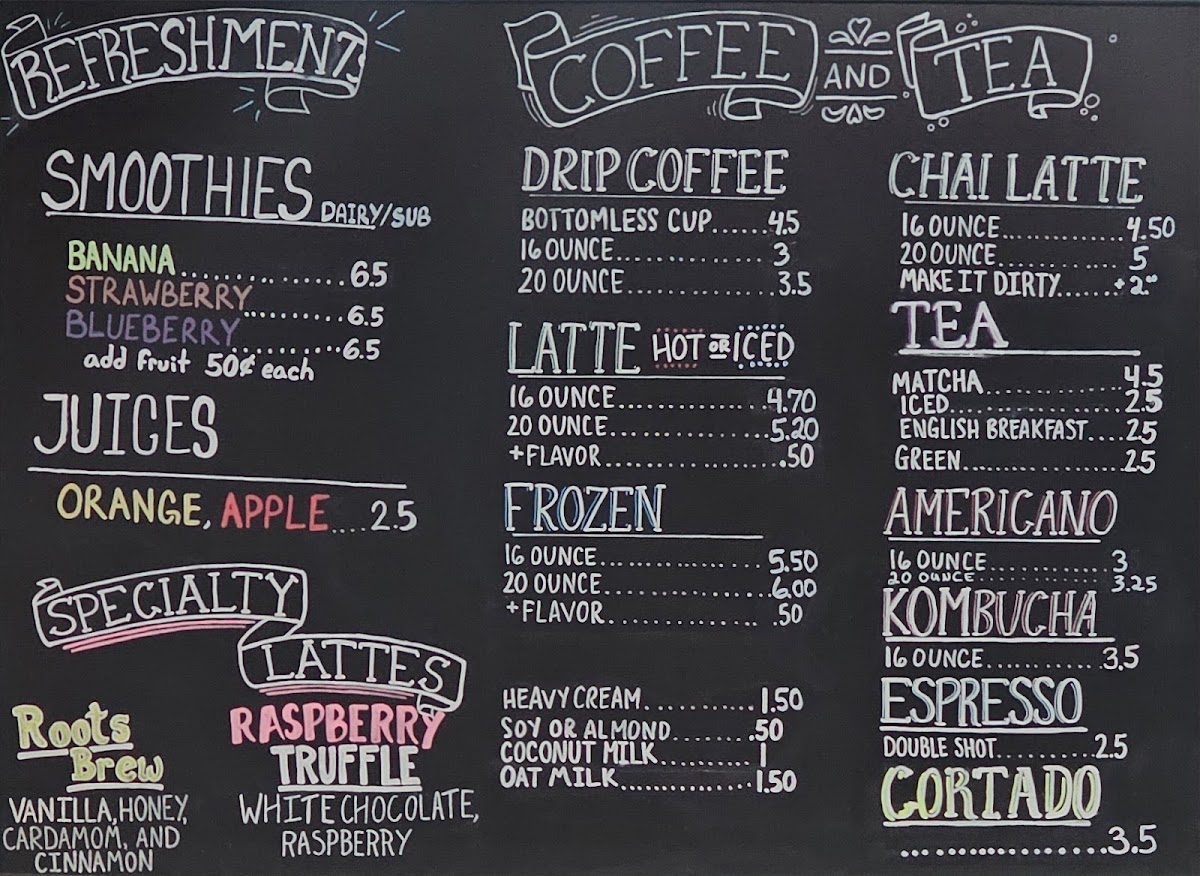 REFRESHMENTS
SMOOTHIES DAIRY/SUB
BANANA..................6.5
STRAWBERRY............6.5
BLUEBERRY............6.5
add fruit 50¢ each
JUICES
ORANGE, APPLE....2.5
SPECIALTY
LATTES
Roots
Brew
VANILLA, HONEY,
CARDAMOM, AND
CINNAMON
RASPBERRY
TRUFFLE
WHITE CHOCOLATE,
RASPBERRY
COFFEE AND TEA
DRIP COFFEE
BOTTOMLESS CUP......4.5
16 OUNCE..................3
20 OUNCE.................3.5
LATTE HOT OR ICED
16 OUNCE................4.70
20 OUNCE................5.20
+FLAVOR..................50
FROZEN
16 OUNCE.................5.50
20 OUNCE................6.00
+FLAVOR................ .50
HEAVY CREAM...........1.50
SOY OR ALMOND........50
COCONUT MILK..........1
OAT MILK..............1.50
CHAI LATTE
16 OUNCE.............4.50
20 OUNCE.............5
MAKE IT DIRTY......+2.00
TEA
MATCHA..............4.5
ICED..................2.5
ENGLISH BREAKFAST....25
GREEN.................25
AMERICANO
16 OUNCE..............3
20 OUNCE..............3.25
KOMBUCHA
16 OUNCE............3.5
ESPRESSO
DOUBLE SHOT..........2.5
CORTADO
....................3.5